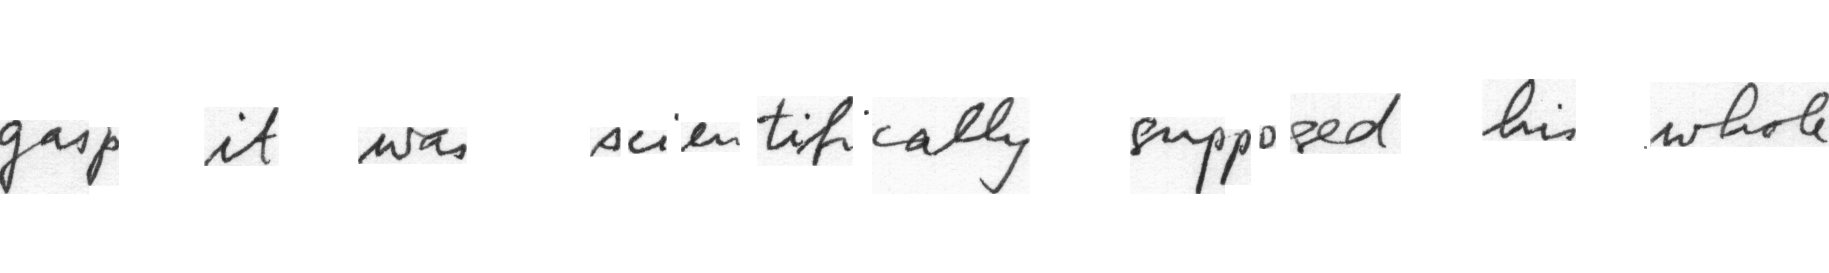 gasp it was scientifically supposed his whole